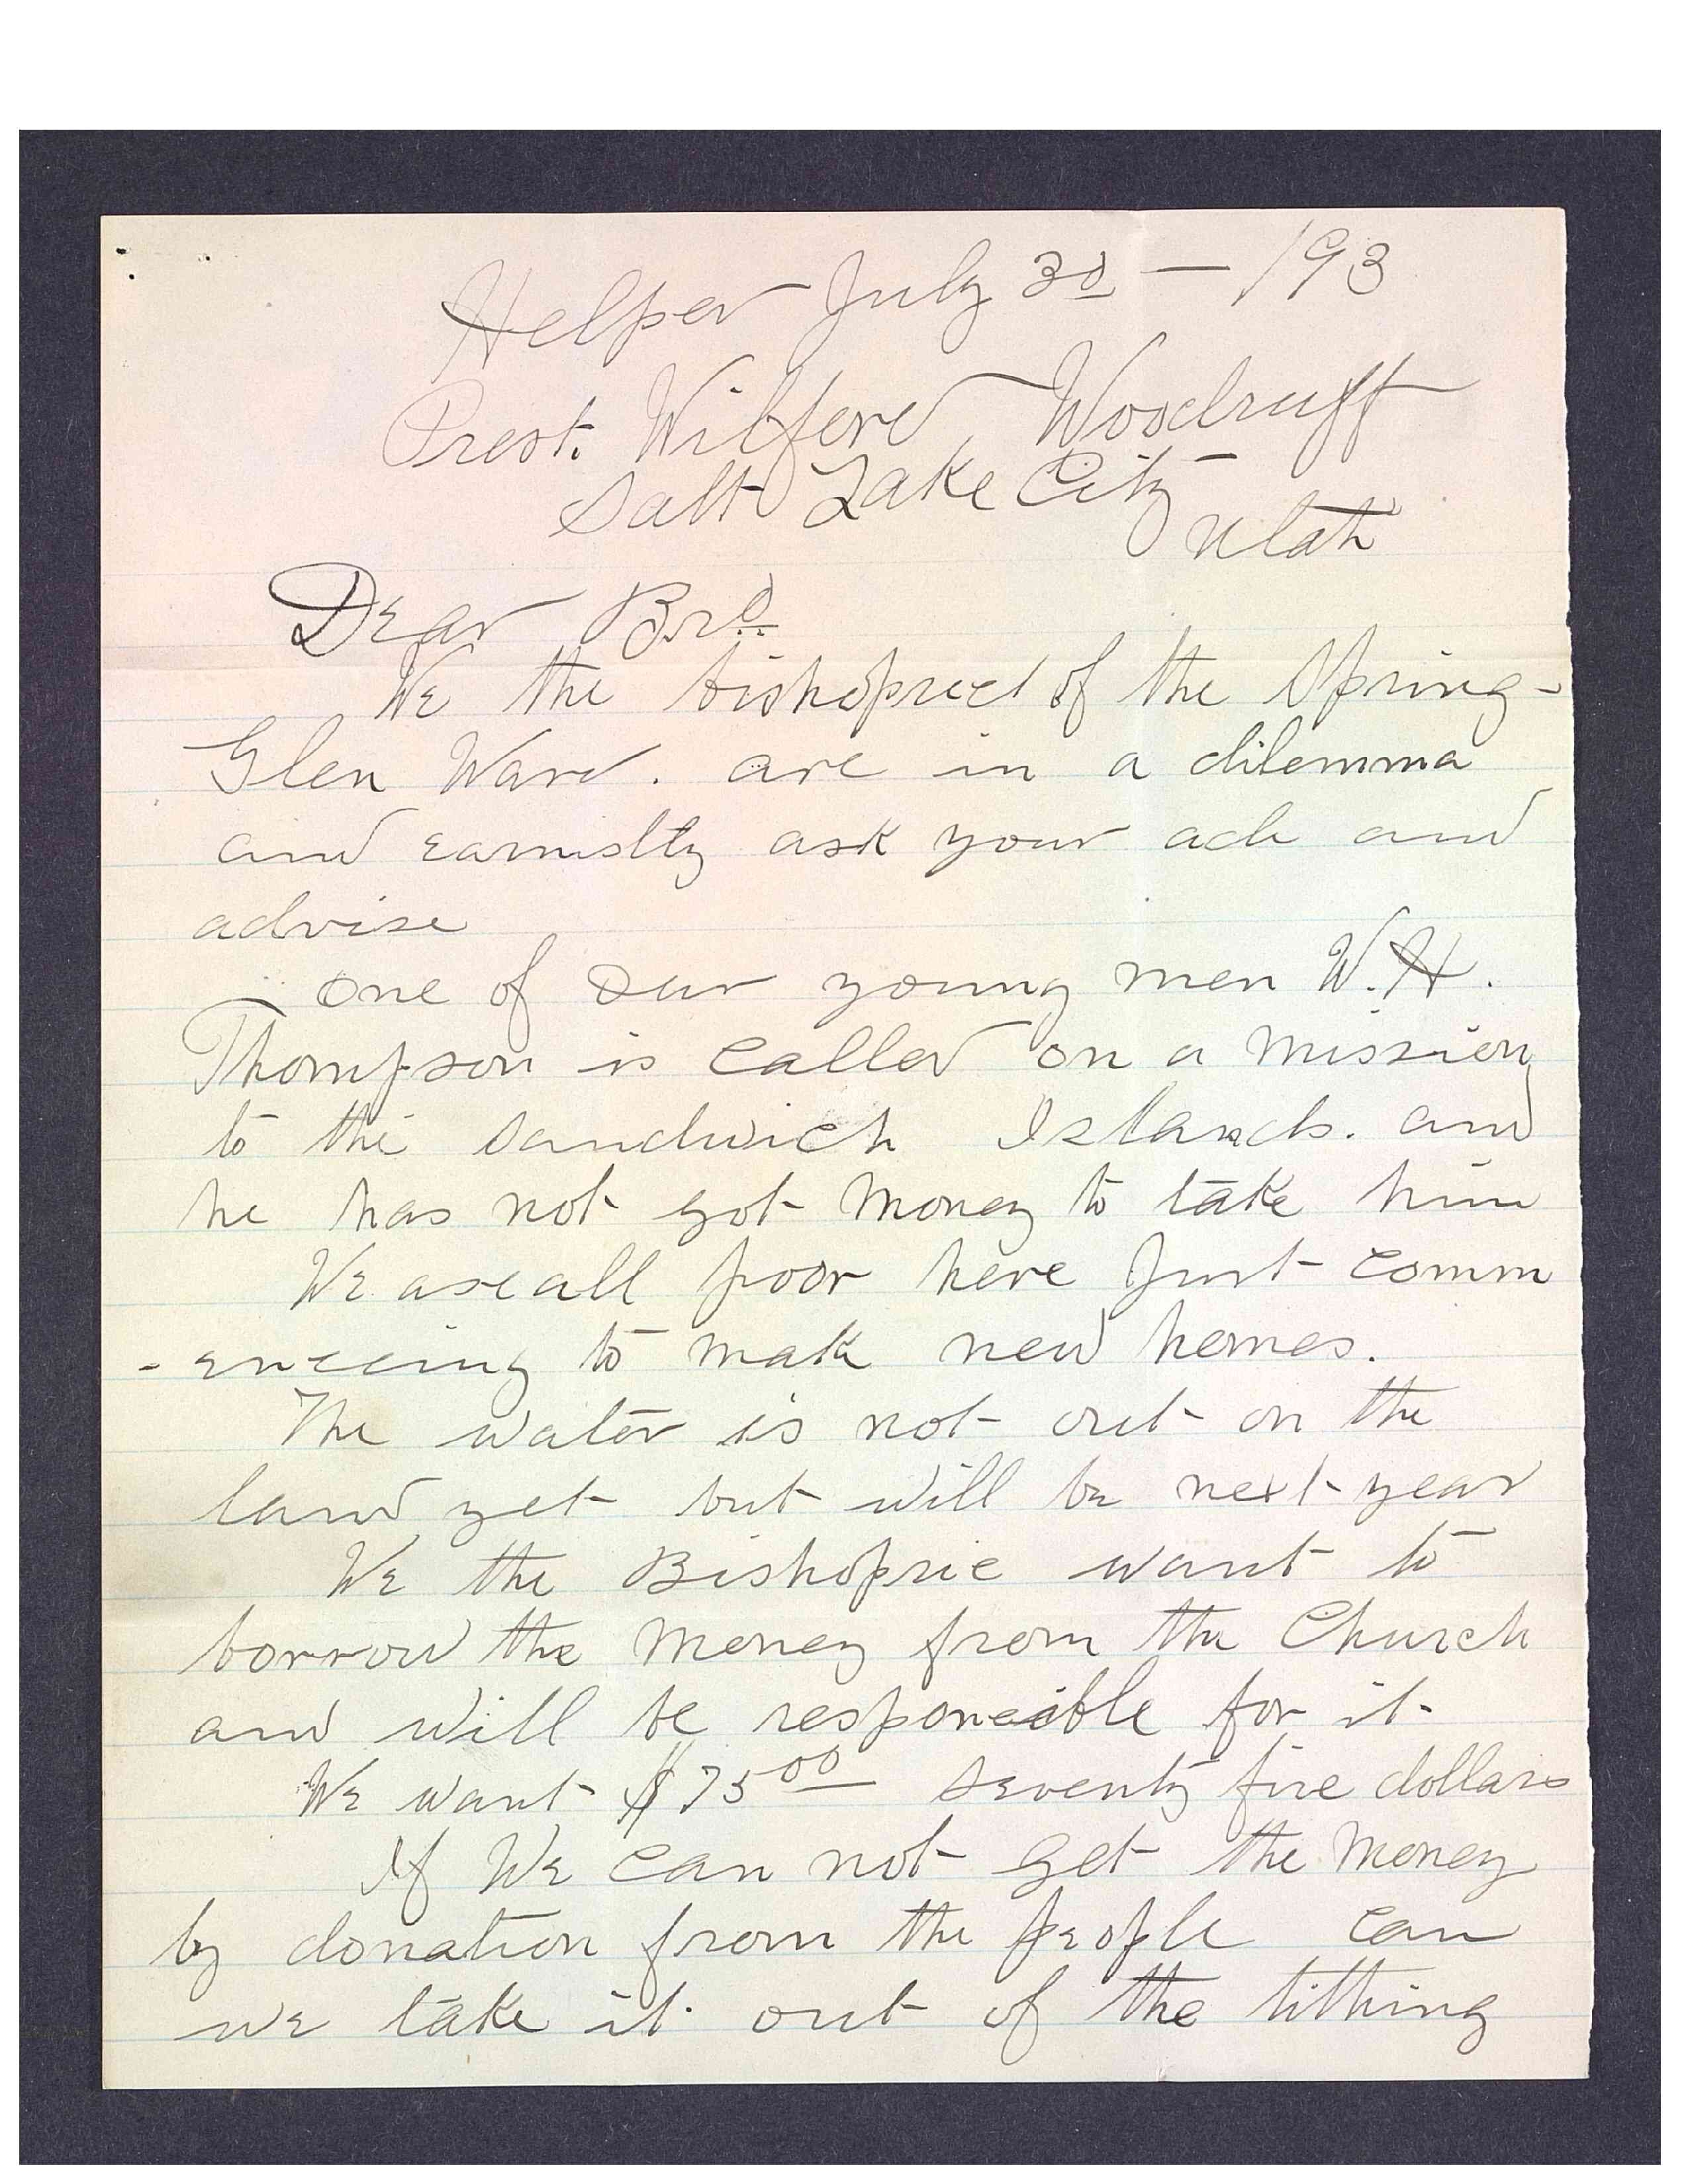 Helper July 30 — /93
Prest. Wilford Woodruff
Salt Lake City
Utah
Dear Bro
We the bishopric of the Spring-
Glen Ward. are in a dilemma
and earnistly ask your ade and
advise
one of our young men W. H.
Thompson is called on a mission
to the Sandwich Islands. and
he has not got money to take him
We are all poor here Just comm
-enceing to make new homes.
The water is not out on the
land yet but will be next year
We the Bishopric want to
borrow the money from the Church
and will be responcible for it
We want $75 00 seventy five dollars
If We can not get the money
by donation from the people can
we take it out of the tithing